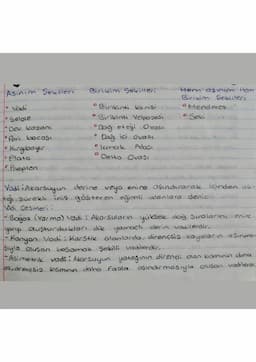 Aşınım Şekilleri
Birikim Şekilleri
Hem aşınım Hem
Birikim Şekilleri
° Vadi
° Şelale
° Dev kazanı
° Peri bacası
° Kırgıbayır
° Plato
° Peneplen
° Birikinti konisi
° Birikinti Yelpazesi
° Dağ eteği Ovası
° Dağ içi ovası
° Irmak Adası
° Delta Ovası
° Menderes
° Seki
Vadi: Akarsuyun derine veya enine aşındırarak içinden
sürekli iniş gösteren eğimli alanlara denir.
Vadi Çeşitleri:
- Boğaz (Yarma) Vadi: Akarsuların yüksek dağ sıralarını enine
yarıp oluşturdukları dik yamaçlı derin vadilerdir.
- Kanyon Vadi: Karstik alanlarda, dirençsiz kayaların aşınma-
sıyla oluşan basamak şekilli vadilerdir.
- Asimetrik vadi: Akarsuyun yatağının dirençli olan kısmının daha
dirençsiz kısmının daha fazla aşındırmasıyla oluşan vadilerdir.